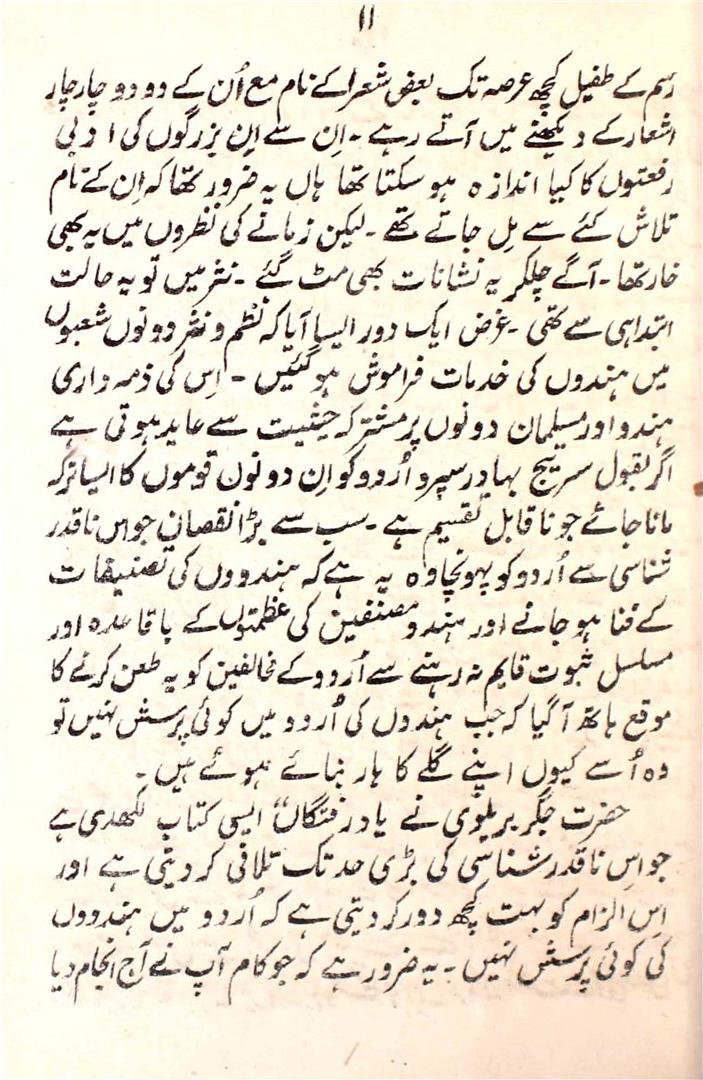 ۱۱
رسم کے طفیل کچھ عرصہ تک بعض شعرا کے نام مع اُن کے دو دو چار چار
اشعار کے دیکھنے میں آتے رہے ۔ اِن سے اِن بزرگوں کی ادبی
رفعتوں کا کیا اندازہ ہو سکتا تھا ہاں یہ ضرور تھا کہ اِن کے نام
تلاش کئے سے مِل جاتے تھے ۔ لیکن زمانے کی نظروں میں یہ بھی
خار تھا ۔ آگے چلکر یہ نشانات بھی مٹ گئے ۔ نثر میں تو یہ حالت
ابتدا ہی سے تھی ۔ غرض ایک دور ایسا آیا کہ نظم و نثر دونوں شعبوں
میں ہندوں کی خدمات فراموش ہو گئیں ۔ اِس کی ذمہ داری
ہندو اور مسلمان دونوں پر مشترکہ حیثیت سے عاید ہوتی ہے
اگر بقول سر تیج بہادر سپرو اُردو کو اِن دونوں قوموں کا ایسا ترکہ
مانا جائے جو ناقابل تقسیم ہے ۔ سب سے بڑا نقصان جو اس ناقدر
شناسی سے اُردو کو پہونچا وہ یہ ہے کہ ہندووں کی تصنیفات
کے فنا ہو جانے اور ہندو مصنفین کی عظمتوں کے باقاعدہ اور
مسلسل ثبوت قایم نہ رہنے سے اُردو کے مخالفین کو یہ طعن کرنے کا
موقع ہاتھ آ گیا کہ جب ہندوں کی اُردو میں کوئی پرسش نہیں تو
وہ اُسے کیوں اپنے گلے کا ہار بنائے ہوئے ہیں ۔
حضرت جگر بریلوی نے یاد رفتگاں“ ایسی کتاب لکھدی ہے
جو اِس ناقدر شناسی کی بڑی حد تک تلافی کر دیتی ہے اور
اِس الزام کو بہت کچھ دور کر دیتی ہے کہ اُردو میں ہندووں
کی کوئی پرسش نہیں ۔ یہ ضرور ہے کہ جو کام آپ نے آج انجام دیا